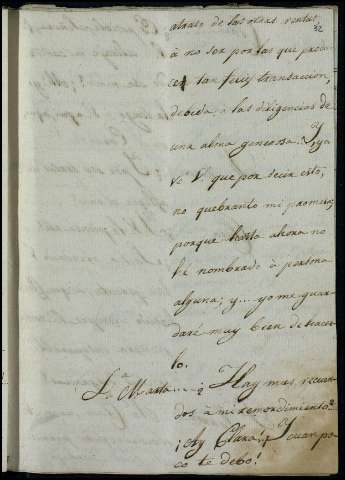 atraso de las otras rentas,
32
á no ser por las qe produ
cen tan feliz transaccion,
debida á las diligencias de
una alma generosa. Y ya
ve V. que por decir esto,
no quebranto mi promesa,
porque hasta ahora no
hé nombrado á persona
alguna; y... yo me guar
daré muy bien de hacer
lo.
Da. Marta.... ¿Hay mas recuer
dos á mi remordimiento?
¡Ay Clara! ¡Cuan po
co te debo!